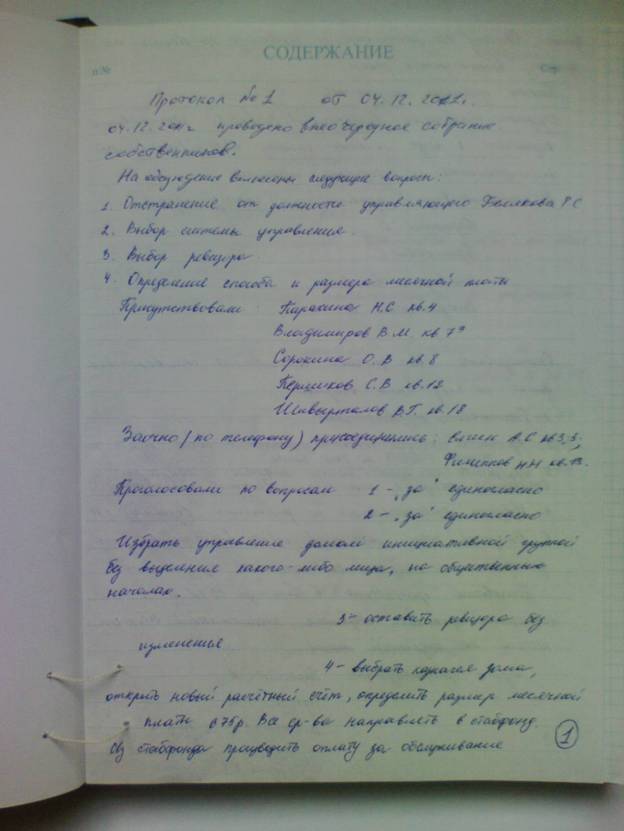 СОДЕРЖАНИЕ
п.№ Стр.
Протокол №1 от 04.12.2011г.
04.12.2011г проведено внеочередное собрание
собственников.
На обсуждение вынесены следующие вопросы:
1. Отстранение от должности управляющего Белякова Р.С
2. Выбор системы управления.
3. Выбор ревизора
4. Определение способа и размера месячной платы
Присутствовали: Каракина Н.С кв.4
Владимиров В.М кв 7а
Сорокина О.В кв.8
С.В кв.12
Шивырталов В.Г. кв.18
Заочно (по телефону) присоединились: А.С кв 3,5;
Филиппов Н.Н кв.13.
Проголосовали по вопросам 1 - "за" единогласно
2 - "за" единогласно
Избрать управление домом инициативной группой
без выделения какого-либо лица, на общественных
началах.
3 - оставить ревизора без
изменения
4 - выбрать казначея дома,
открыть новый расчётный счёт, определить размер месячной
платы в 75р. Все ср-ва направлять в стабфонд.
Из стабфонда производить оплату за обслуживание
1